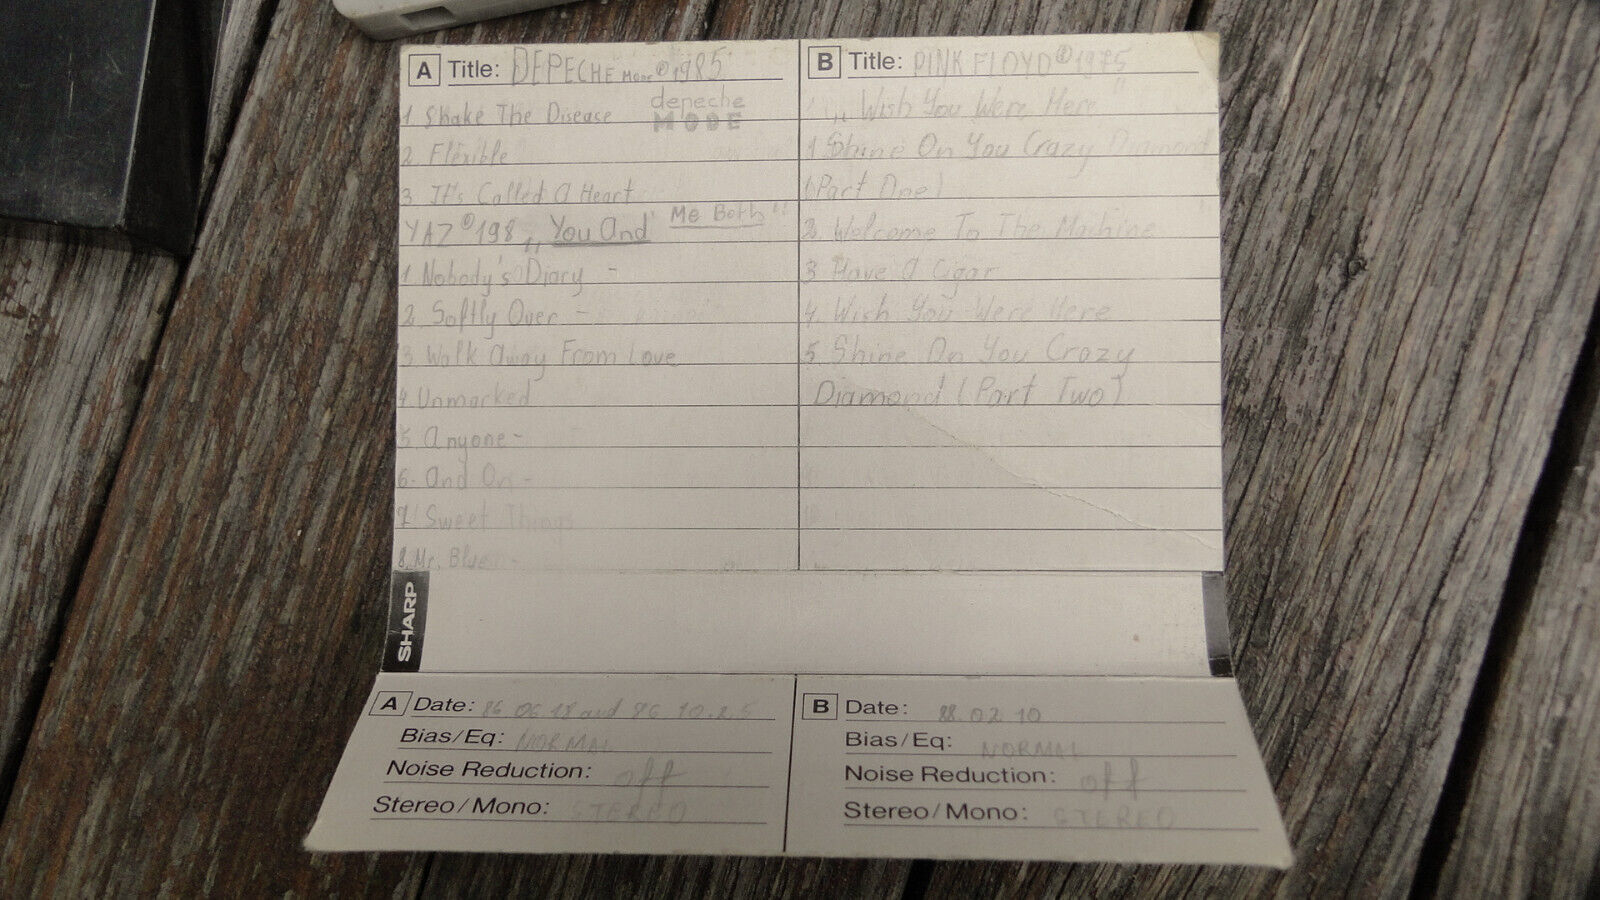 A Title: DEPECHE Mode ℗ 1985
depeche
MODE
1 Shake The Disease
2. Flexible
3. It's Called A Heart
YAZ ℗ 198 „ You And Me Both"
1. Nobody's Diary -
2. Softly Over -
3 Walk Away From Love
4 Unmarked
5 Anyone -
6. And On -
7. Sweet Things
8. Mr. Blue -
B Title: PINK FLOYD ℗ 1975
„ Wish You Were Here "
1 Shine On You Crazy Diamond
(Part One)
2. Welcome To The Machine
3 Have A Cigar
4. Wish You Were Here
5. Shine On You Crazy
Diamond (Part Two)
SHARP
A Date: 86 06 18 and 86 10.25
Bias/Eq: NORMAL
Noise Reduction: off
Stereo/Mono: STEREO
B Date: 88. 02 10
Bias/Eq: NORMAL
Noise Reduction: off
Stereo/Mono: STEREO